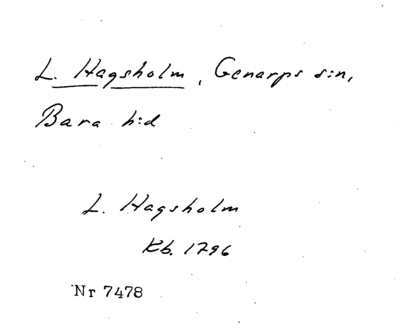 L. Hagsholm, Genarps s:n,
Bara h:d
L. Hagsholm
Kb. 1796
Nr 7478